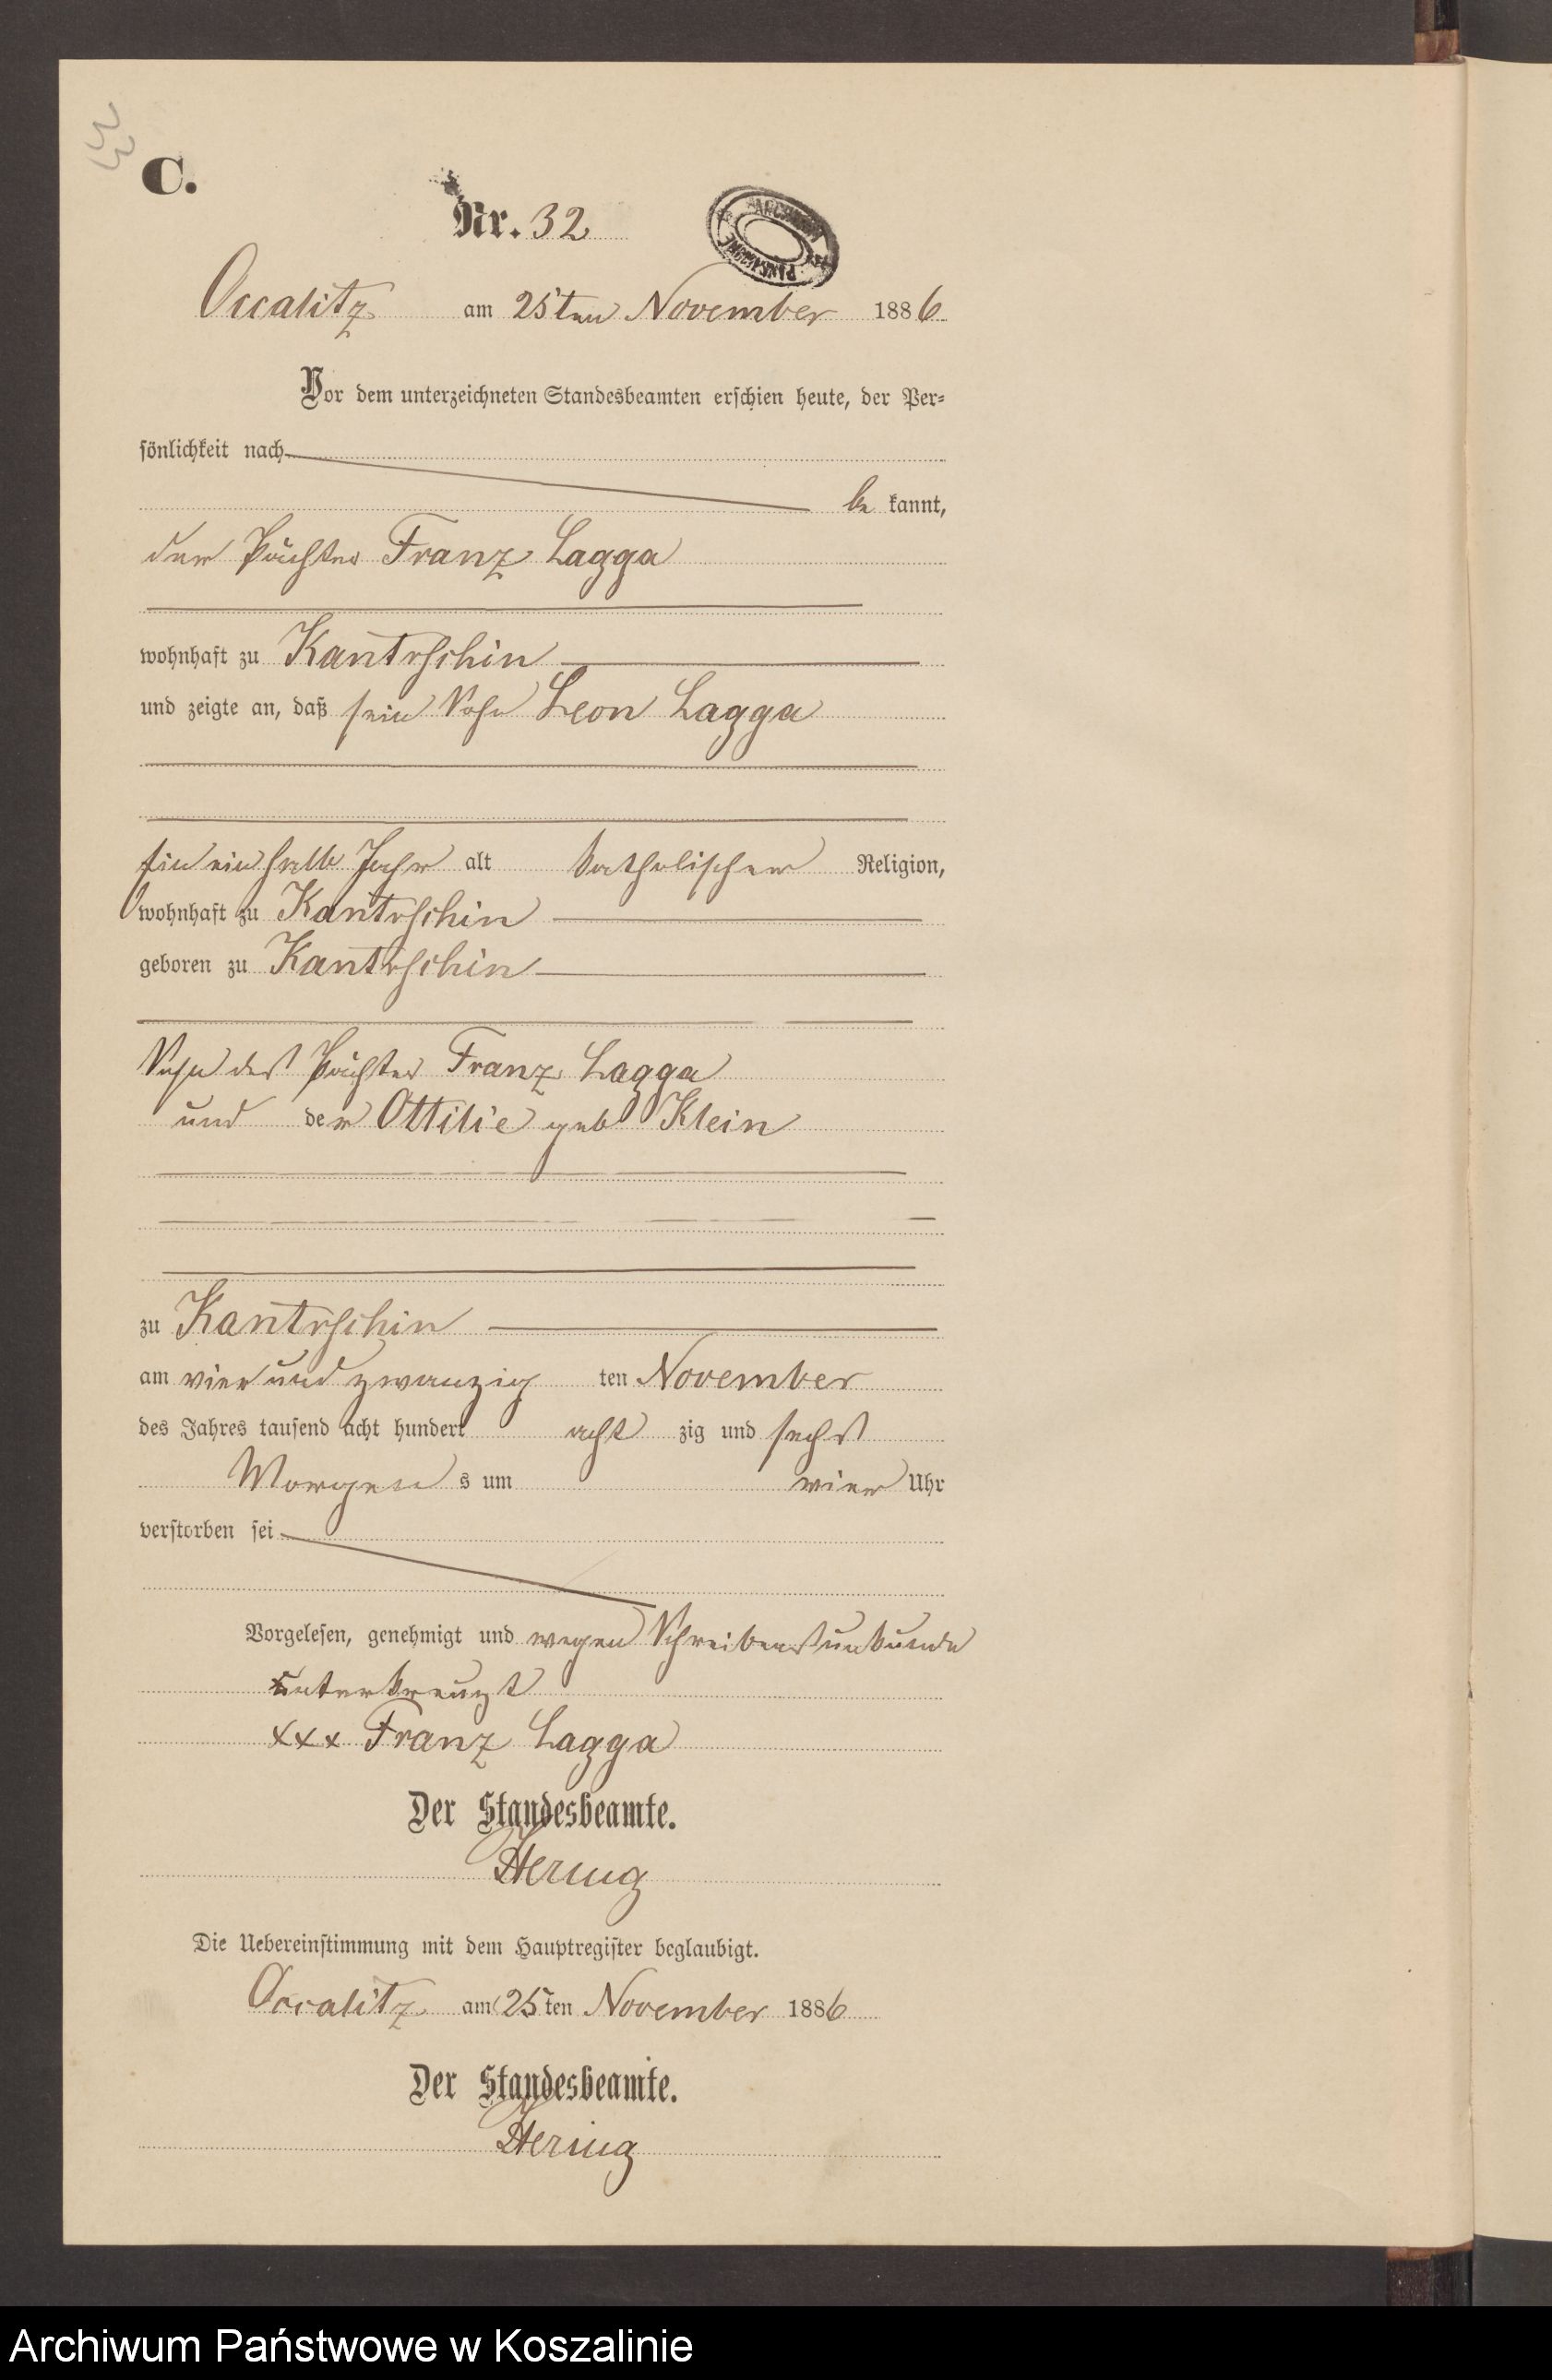 33
C.
Nr. 32
Occalitz am 25ten November 1886
Vor dem unterzeichneten Standesbeamten erschien heute, der Per-
sönlichkeit nach
be kannt,
der Pächter Franz Lagga
wohnhaft zu Kantrschin
und zeigte an, daß sein Sohn Leon Lagga
ein ein halb Jahr alt katholischer Religion,
wohnhaft zu Kantrschin
geboren zu Kantrschin
Sohn des Pächter Franz Lagga
und der Ottilie geb Klein
zu Kantrschin
am vier und zwanzig ten November
des Jahres tausend acht hundert acht zig und sechs
Morgen s um vier Uhr
verstorben sei
Vorgelesen, genehmigt und wegen Schreibensunkunde
unterkreuzt
xxx Franz Lagga
Der Standesbeamte.
Hering
Die Uebereinstimmung mit dem Hauptregister beglaubigt.
Occalitz am 25 ten November 1886
Der Standesbeamte.
Hering
Archiwum Państwowe w Koszalinie